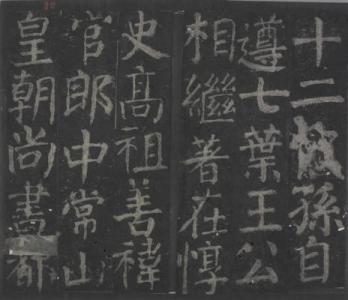 十二孫自
遵七葉王公
相繼著在惇
史高祖善禕
官郎中常山
皇朝尚書都